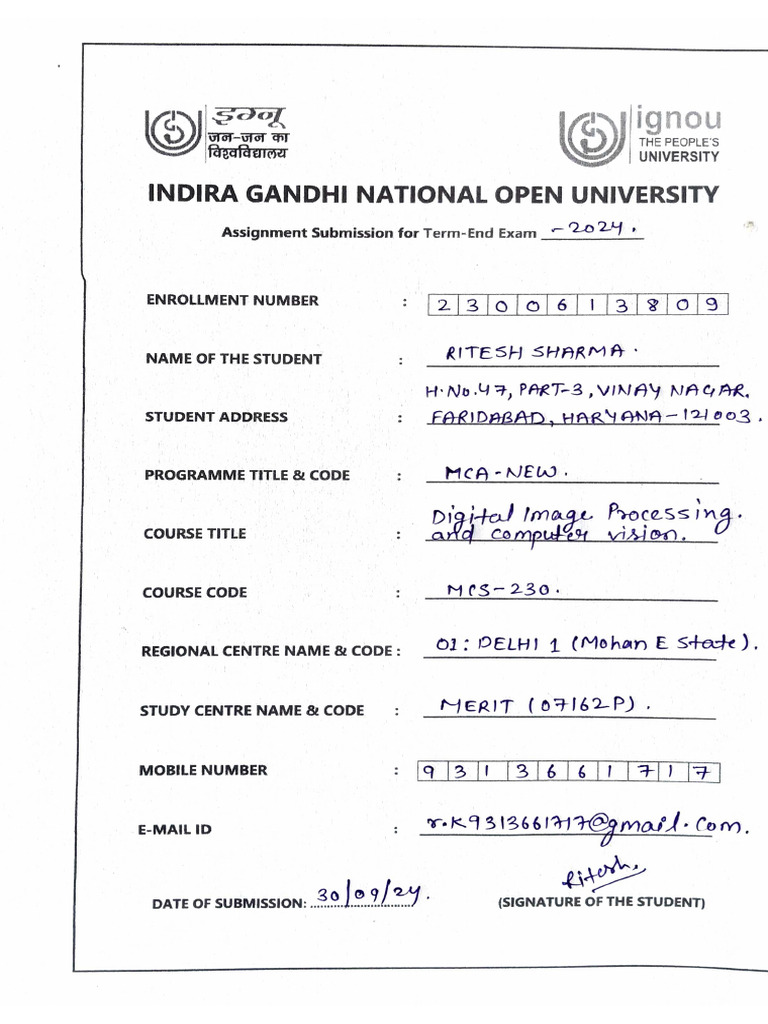 इग्नू
जन-जन का
विश्वविद्यालय
ignou
THE PEOPLE'S
UNIVERSITY
INDIRA GANDHI NATIONAL OPEN UNIVERSITY
Assignment Submission for Term-End Exam -2024.
ENROLLMENT NUMBER : 2300613809
NAME OF THE STUDENT : RITESH SHARMA.
H.No.47, PART-3, VINAY NAGAR.
STUDENT ADDRESS : FARIDABAD, HARYANA-121003.
PROGRAMME TITLE & CODE : MCA-NEW.
Digital Image Processing.
COURSE TITLE : and computer vision.
COURSE CODE : MCS-230.
REGIONAL CENTRE NAME & CODE : 01: DELHI 1 (Mohan E State).
STUDY CENTRE NAME & CODE : MERIT (07162P).
MOBILE NUMBER : 9313661717
E-MAIL ID : r.K9313661717@gmail.com.
Ritesh.
DATE OF SUBMISSION: 30/09/24. (SIGNATURE OF THE STUDENT)